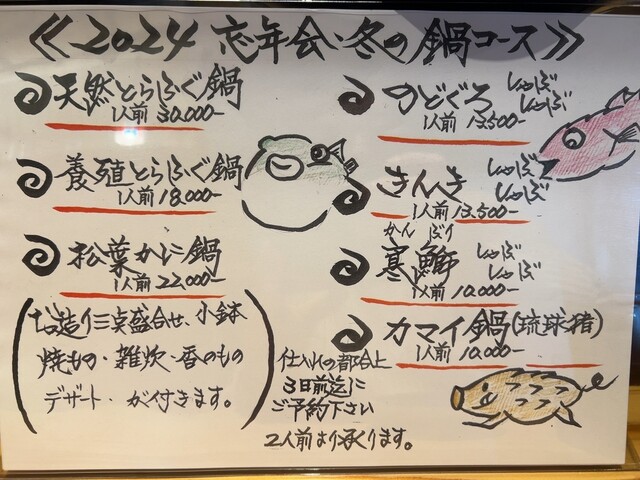 《2024 忘年会・冬の鍋コース》
天然とらふぐ鍋
1人前 30,000-
養殖とらふぐ鍋
1人前 18,000-
松葉かに鍋
1人前 22,000-
(お造り三点盛合せ、小鉢
焼もの・雑炊・香のもの
デザート・が付きます。)
のどぐろ しゃぶしゃぶ
1人前 13,500-
きんき しゃぶしゃぶ
1人前 13,500-
かん ぶり
寒鰤 しゃぶしゃぶ
1人前 10,000-
カマイ鍋(琉球猪)
1人前 10,000-
仕入れの都合上
3日前迄に
ご予約下さい
2人前より承ります。